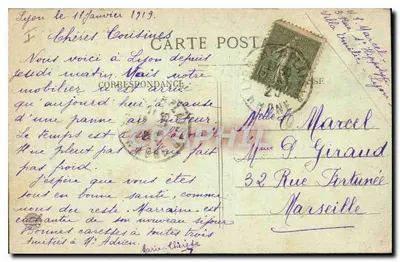 Lyon le 11 Janvier 1919.
Chères Cousines
Nous voici à Lyon depuis
jeudi matin, Mais notre
mobilier
qu'aujourd'hui à cause
d'une panne au moteur
Le temps est à
Il ne pleut pas et il ne fait
pas froid.
J'espère que vous êtes
tous en bonne santé, comme
nous du reste. Marraine est
enchantée de son nouveau séjour
Bonnes caresses à toutes trois
Amitiés à Mr Adrien.
CARTE POSTALE
CORRESPONDANCE
ADRESSE
Melle C. Marcel
Mme P. Giraud
32 Rue Fortunée
Marseille
Marcel
Villa Emilie
Lyon